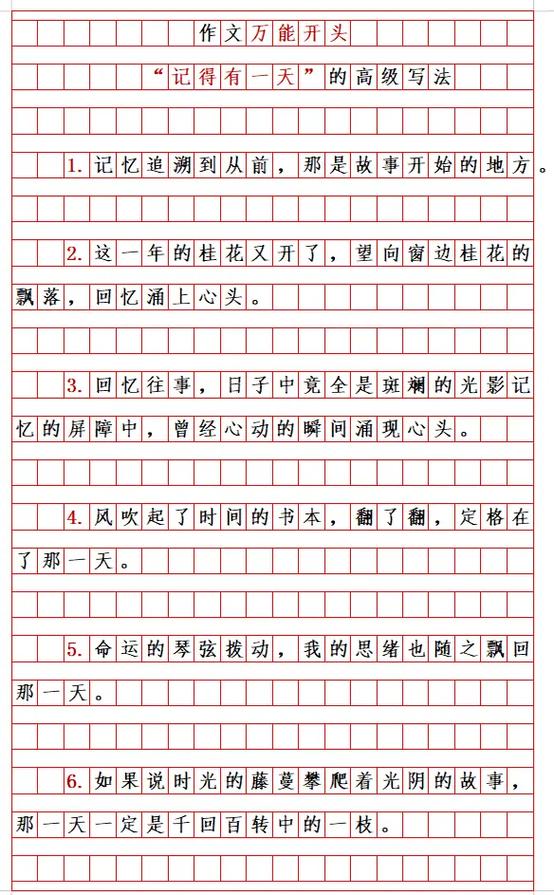 作文万能开头
“记得有一天”的高级写法
1.记忆追溯到从前，那是故事开始的地方。
2.这一年的桂花又开了，望向窗边桂花的
飘落，回忆涌上心头。
3.回忆往事，日子中竟全是斑斓的光影记
忆的屏障中，曾经心动的瞬间涌现心头。
4.风吹起了时间的书本，翻了翻，定格在
了那一天。
5.命运的琴弦拨动，我的思绪也随之飘回
那一天。
6.如果说时光的藤蔓攀爬着光阴的故事，
那一天一定是千回百转中的一枝。